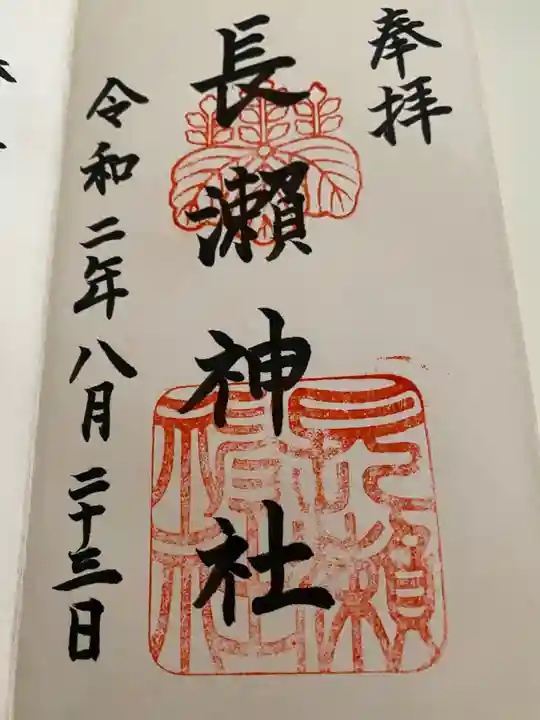 奉拝
長瀬神社
令和二年八月二十三日